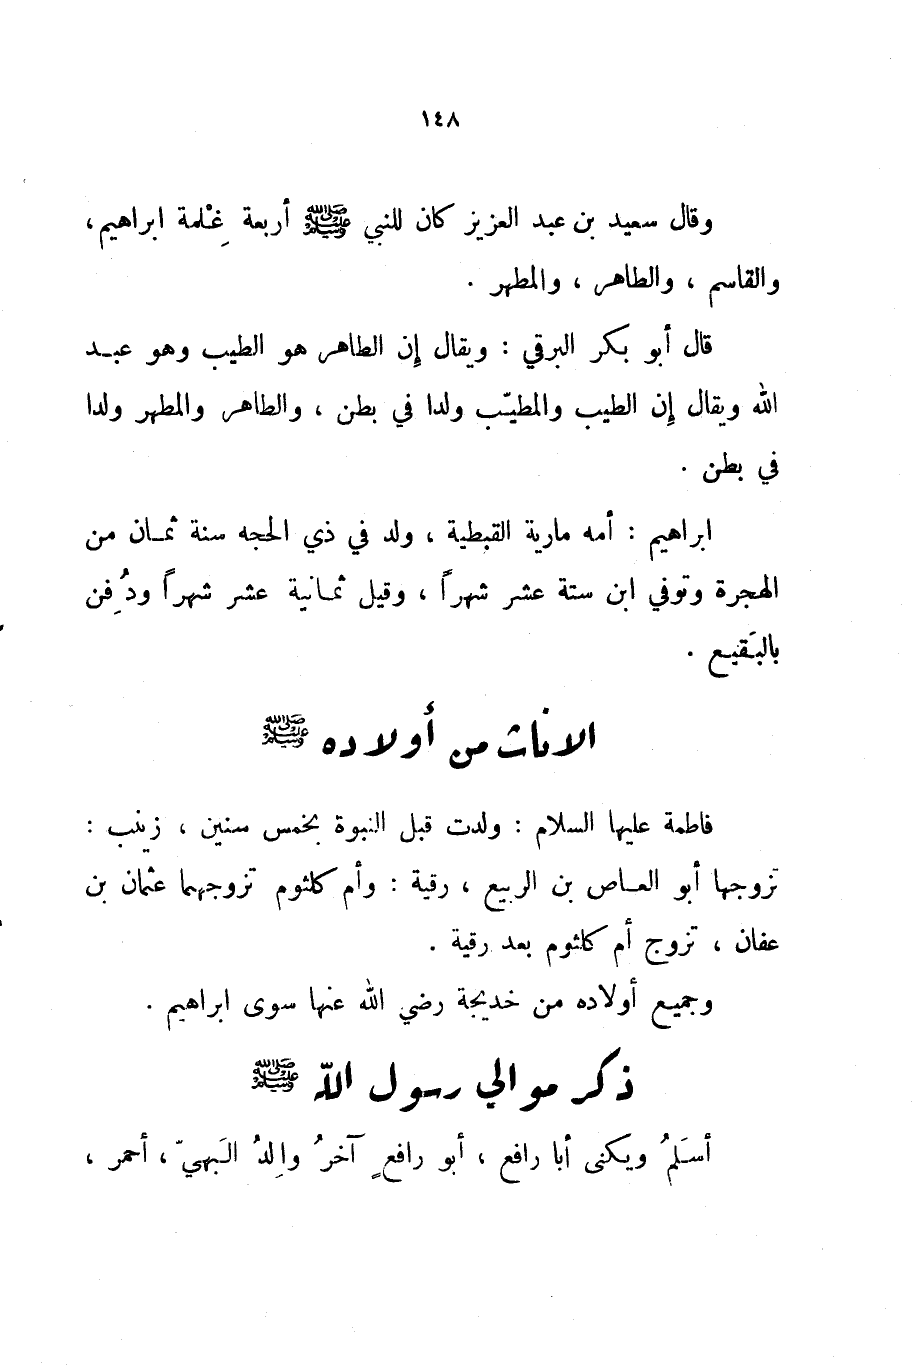 ١٤٨
وقال سعيد بن عبد العزيز كان للنبي ﷺ أربعة غِلْمة ابراهيم،
والقاسم ، والطاهر ، والمطهر .
قال أبو بكر البرقي : ويقال إن الطاهر هو الطيب وهو عبـد
الله ويقال إن الطيب والمطيّب ولدا في بطن ، والطاهر والمطهر ولدا
في بطن .
ابراهيم : أمه مارية القبطية ، ولد في ذي الحجه سنة ثمـان من
الهجرة وتوفي ابن ستة عشر شهراً ، وقيل ثمـانية عشر شهراً ودُفِن
بالبَقيـع .
الاناث من أولاده ﷺ
فاطمة عليها السلام : ولدت قبل النبوة بخمس سنين ، زينب :
تزوجها أبو العـاص بن الربيع ، رقية : وأم كلثوم تزوجهما عثمان بن
عفان ، تزوج أم كلثوم بعد رقية .
وجميع أولاده من خديجة رضي الله عنها سوى ابراهيم .
ذكر موالي رسول الله ﷺ
أسـلَمُ ويكنى أبا رافع ، أبو رافعٍ آخرُ والِدُ البَـهيّ ، أحمر ،